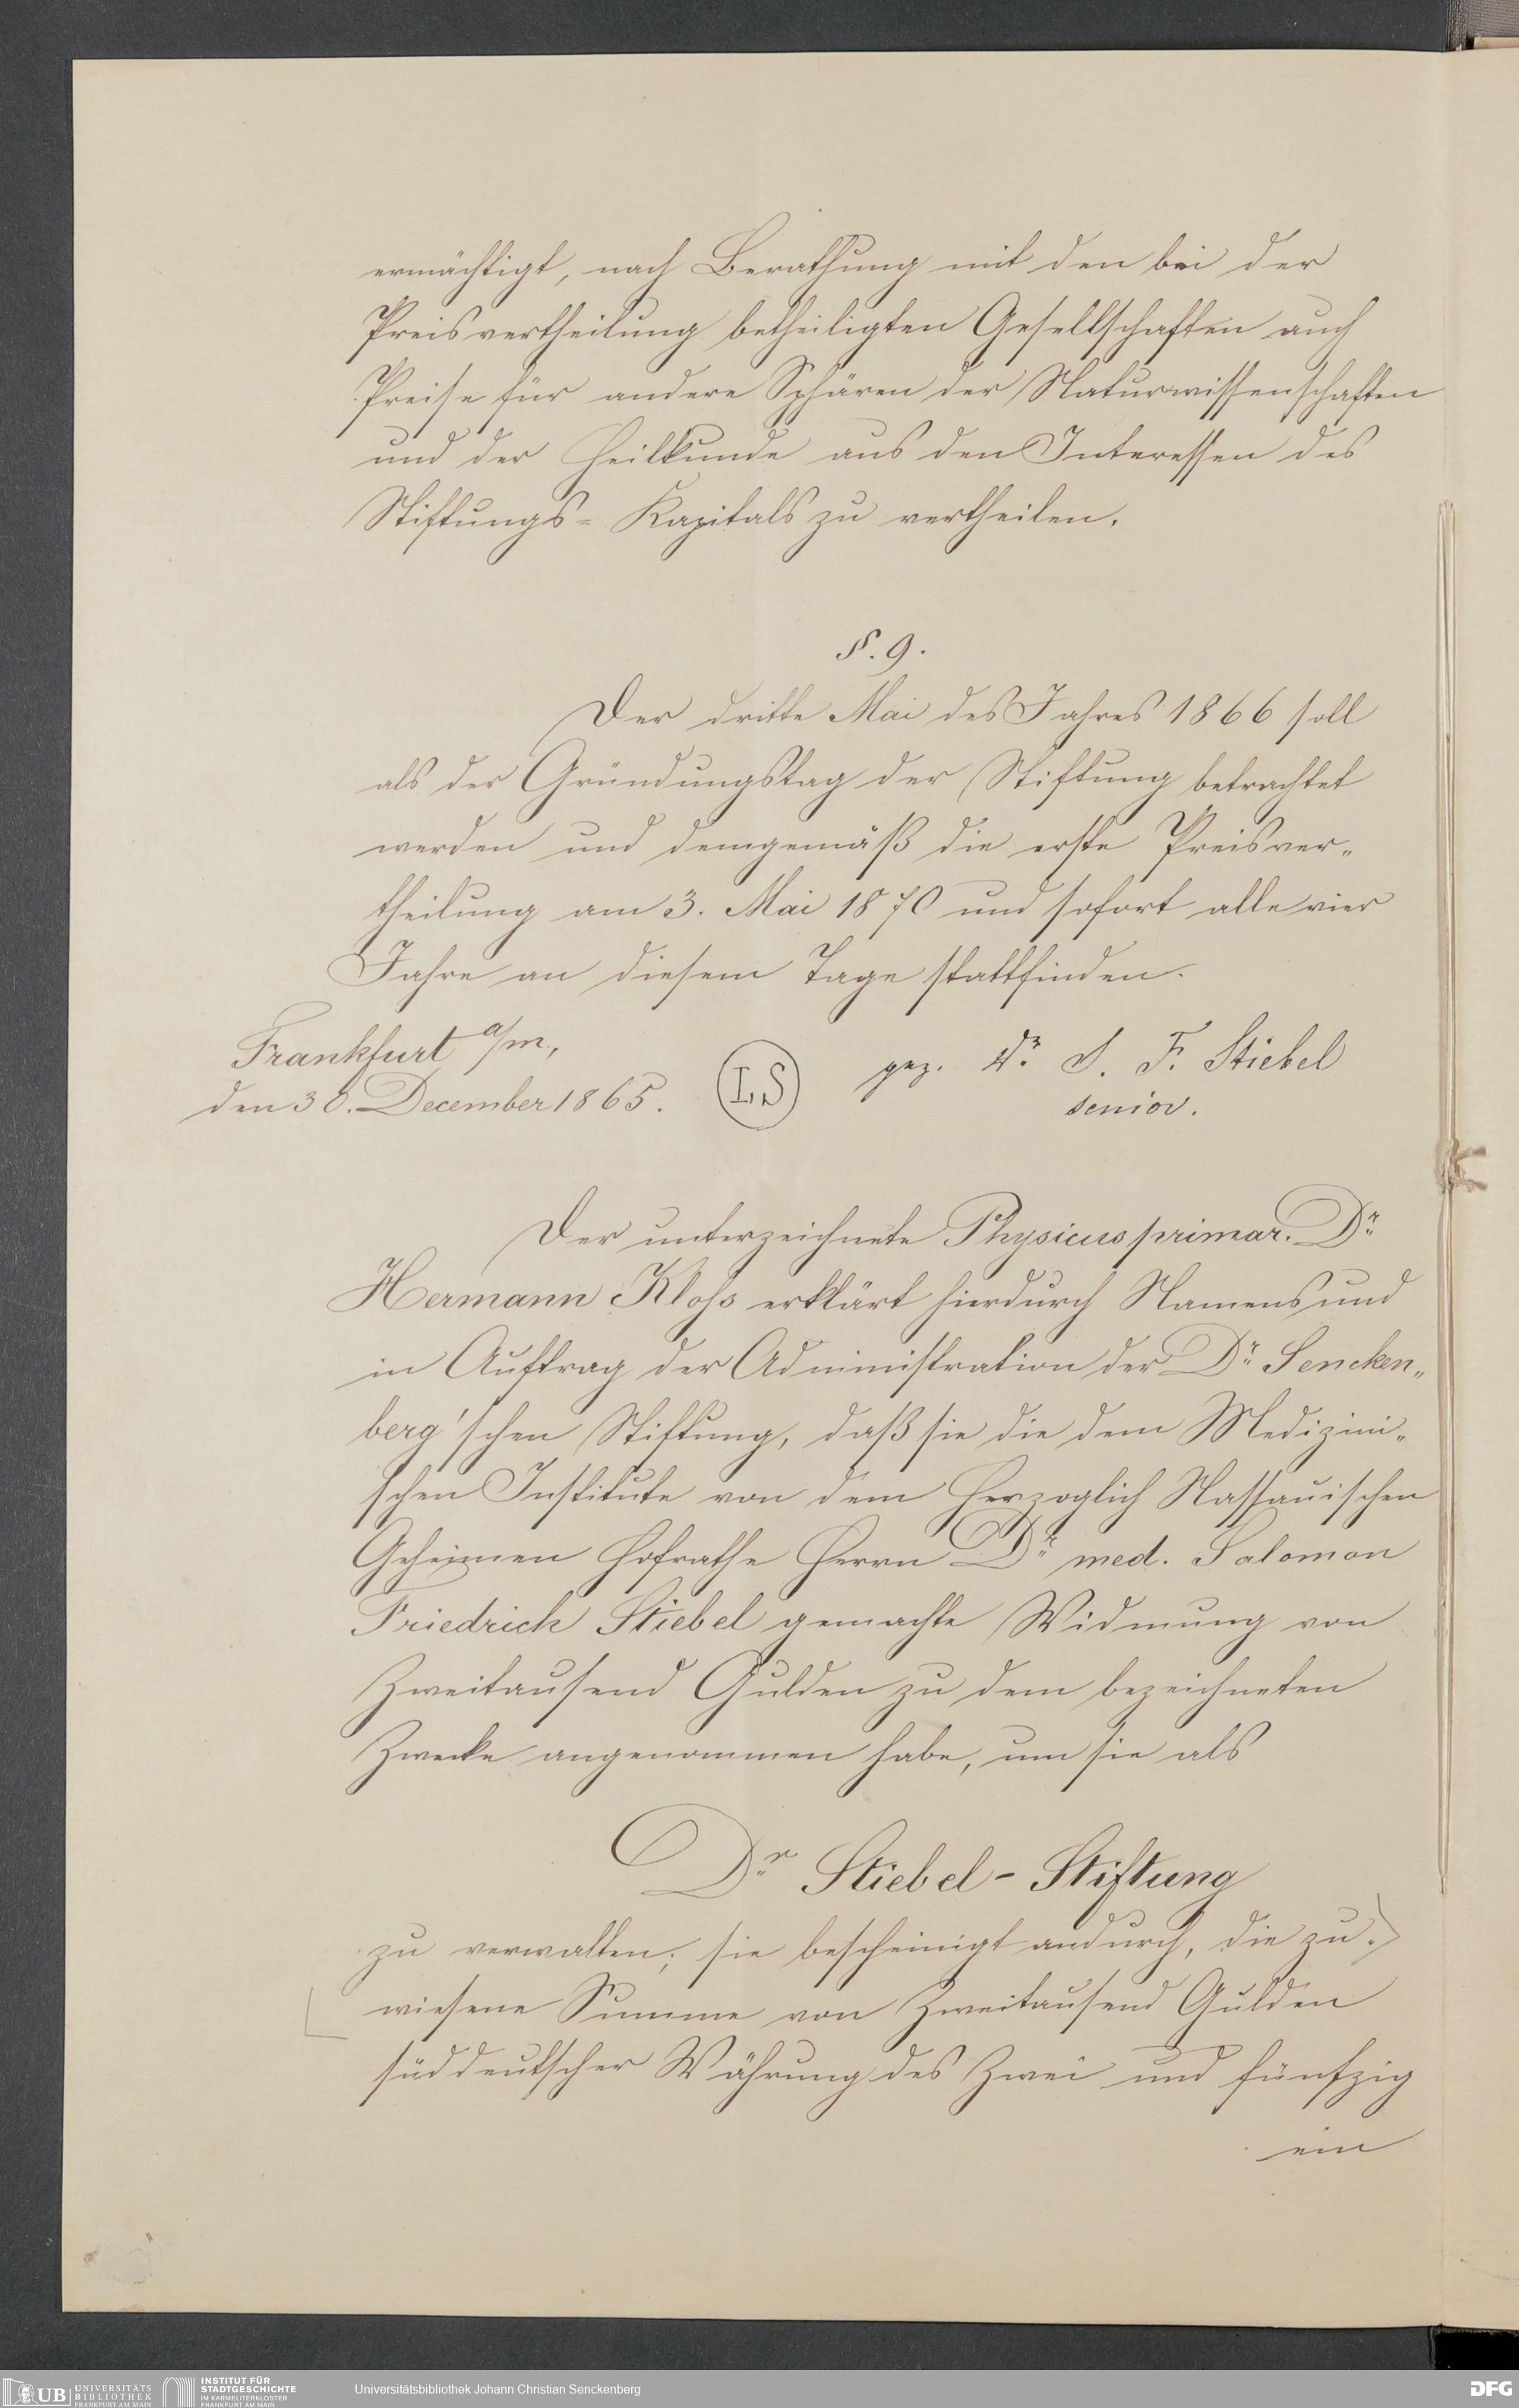 ermächtigt, nach Berathung mit den bei der
Preisvertheilung betheiligten Gesellschaften auch
Preise für andere Sphären der Naturwissenschaften
und der Heilkunde aus den Interessen des
Stiftungs- Kapitals zu vertheilen.
§. 9.
Der dritte Mai des Jahres 1866 soll
als der Gründungstag der Stiftung betrachtet
werden und demgemäß die erste Preisver-
theilung am 3. Mai 1870 und sofort alle vier
Jahre an diesem Tage stattfinden.
Frankfurt a/m,
den 30. December 1865.
LS
gez. Dr. S. F. Stiebel
senior.
Der unterzeichnete Physicus primar. Dr.
Hermann Kloss erklärt hierdurch Namens und
in Auftrag der Administration der Dr. Sencken-
berg'schen Stiftung, daß sie die dem Medizini-
schen Institute von dem Herzoglich Nassauischen
Geheimen Hofrathe Herrn Dr. med. Salomon
Friedrich Stiebel gemachte Widmung von
Zweitausend Gulden zu dem bezeichneten
Zwecke angenommen habe, um sie als
Dr. Stiebel-Stiftung
zu verwalten; sie bescheinigt andurch, die zu-
wiesene Summe von Zweitausend Gulden
süddeutscher Währung des Zwei und fünfzig
ein
UB UNIVERSITÄTS
BIBLIOTHEK
FRANKFURT AM MAIN
INSTITUT FÜR
STADTGESCHICHTE
IM KARMELITERKLOSTER
FRANKFURT AM MAIN
Universitätsbibliothek Johann Christian Senckenberg
DFG